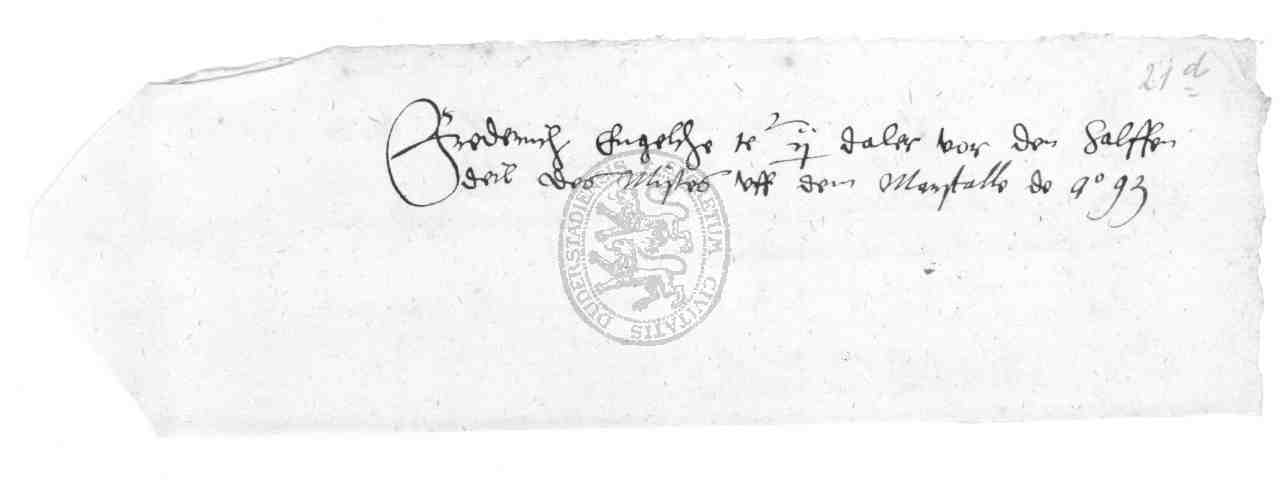 21 d
Frederich Engelche te ij daler vor den halffen
deil des Mistes vff dem Marstalle de ao 93
DUDERSTADIENSIS CIVITATIS